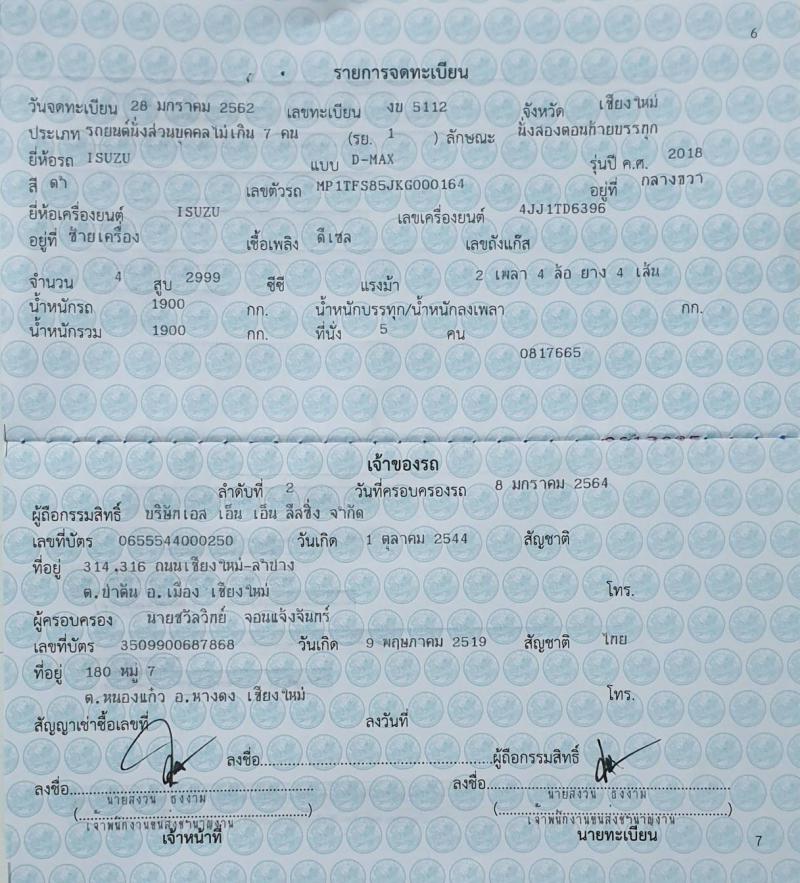 6
รายการจดทะเบียน
วันจดทะเบียน 28 มกราคม 2562 เลขทะเบียน งข 5112 จังหวัด เชียงใหม่
ประเภท รถยนต์นั่งส่วนบุคคลไม่เกิน 7 คน (รย. 1 ) ลักษณะ นั่งสองตอนท้ายบรรทุก
ยี่ห้อรถ ISUZU แบบ D-MAX รุ่นปี ค.ศ. 2018
สี ดำ เลขตัวรถ MP1TFS85JKG000164 อยู่ที่ กลางขวา
ยี่ห้อเครื่องยนต์ ISUZU เลขเครื่องยนต์ 4JJ1TD6396
อยู่ที่ ซ้ายเครื่อง เชื้อเพลิง ดีเซล เลขถังแก๊ส
จำนวน 4 สูบ 2999 ซีซี แรงม้า 2 เพลา 4 ล้อ ยาง 4 เส้น
น้ำหนักรถ 1900 กก. น้ำหนักบรรทุก/น้ำหนักลงเพลา กก.
น้ำหนักรวม 1900 กก. ที่นั่ง 5 คน
0817665
เจ้าของรถ
ลำดับที่ 2 วันที่ครอบครองรถ 8 มกราคม 2564
ผู้ถือกรรมสิทธิ์ บริษัทเอส เอ็น เอ็น ลีสซิ่ง จำกัด
เลขที่บัตร 0655544000250 วันเกิด 1 ตุลาคม 2544 สัญชาติ
ที่อยู่ 314.316 ถนนเชียงใหม่-ลำปาง
ต.ป่าตัน อ.เมือง เชียงใหม่ โทร.
ผู้ครอบครอง นายชวัลวิทย์ จอนแจ้งจันทร์
เลขที่บัตร 3509900687868 วันเกิด 9 พฤษภาคม 2519 สัญชาติ ไทย
ที่อยู่ 180 หมู่ 7
ต.หนองแก๋ว อ.หางดง เชียงใหม่ โทร.
สัญญาเช่าซื้อเลขที่ ลงวันที่
ลงชื่อ ผู้ถือกรรมสิทธิ์
ลงชื่อ ลงชื่อ
นายสงวน ธงงาม นายสงวน ธงงาม
( เจ้าพนักงานขนส่งชำนาญงาน ) ( เจ้าพนักงานขนส่งชำนาญงาน )
เจ้าหน้าที่ นายทะเบียน
7